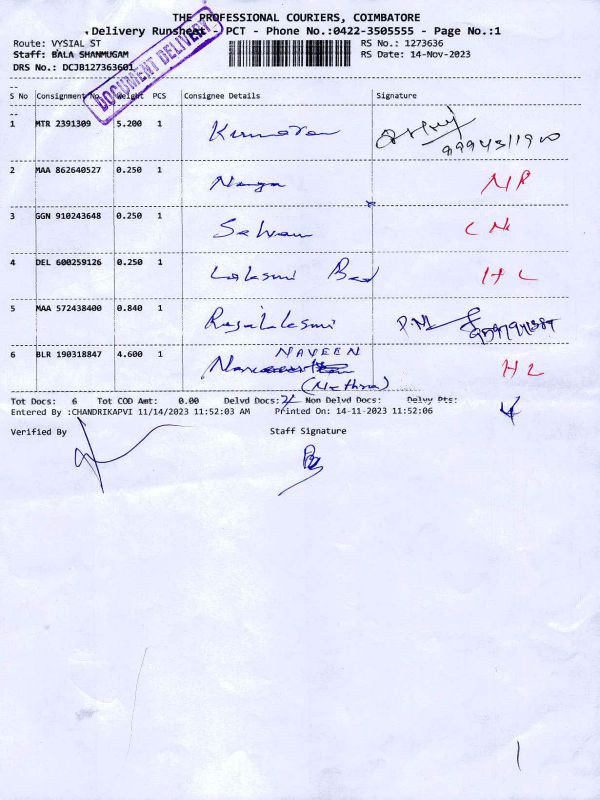 THE PROFESSIONAL COURIERS, COIMBATORE
Delivery Runsheet - PCT - Phone No.:0422-3505555 - Page No.:1
Route: VYSIAL ST RS No.: 1273636
Staff: BALA SHANMUGAM RS Date: 14-Nov-2023
DRS No.: DCJB127363601
DOCUMENT DELIVERY
S No Consignment No. Weight PCS Consignee Details Signature
1 MTR 2391309 5.200 1 Kumaran
2 MAA 862640527 0.250 1 NR
3 GGN 910243648 0.250 1 Selvan CN
4 DEL 600259126 0.250 1 HL
5 MAA 572438400 0.840 1 Rajalaksmi P.M
NAVEEN
6 BLR 190318847 4.600 1 HL
(Nethra)
Tot Docs: 6 Tot COD Amt: 0.00 Delvd Docs: 2 Non Delvd Docs: 4 Delvy Pts:
Entered By :CHANDRIKAPVI 11/14/2023 11:52:03 AM Printed On: 14-11-2023 11:52:06
Verified By Staff Signature